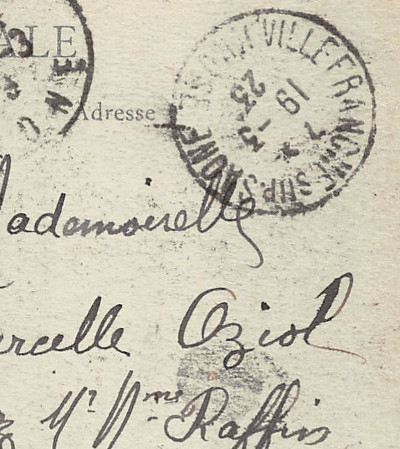 ALE
Adresse
VILLEFRANCHE SUR SAONE
19
ademoiselle
rcelle Oziol
Mr Mme Raffin